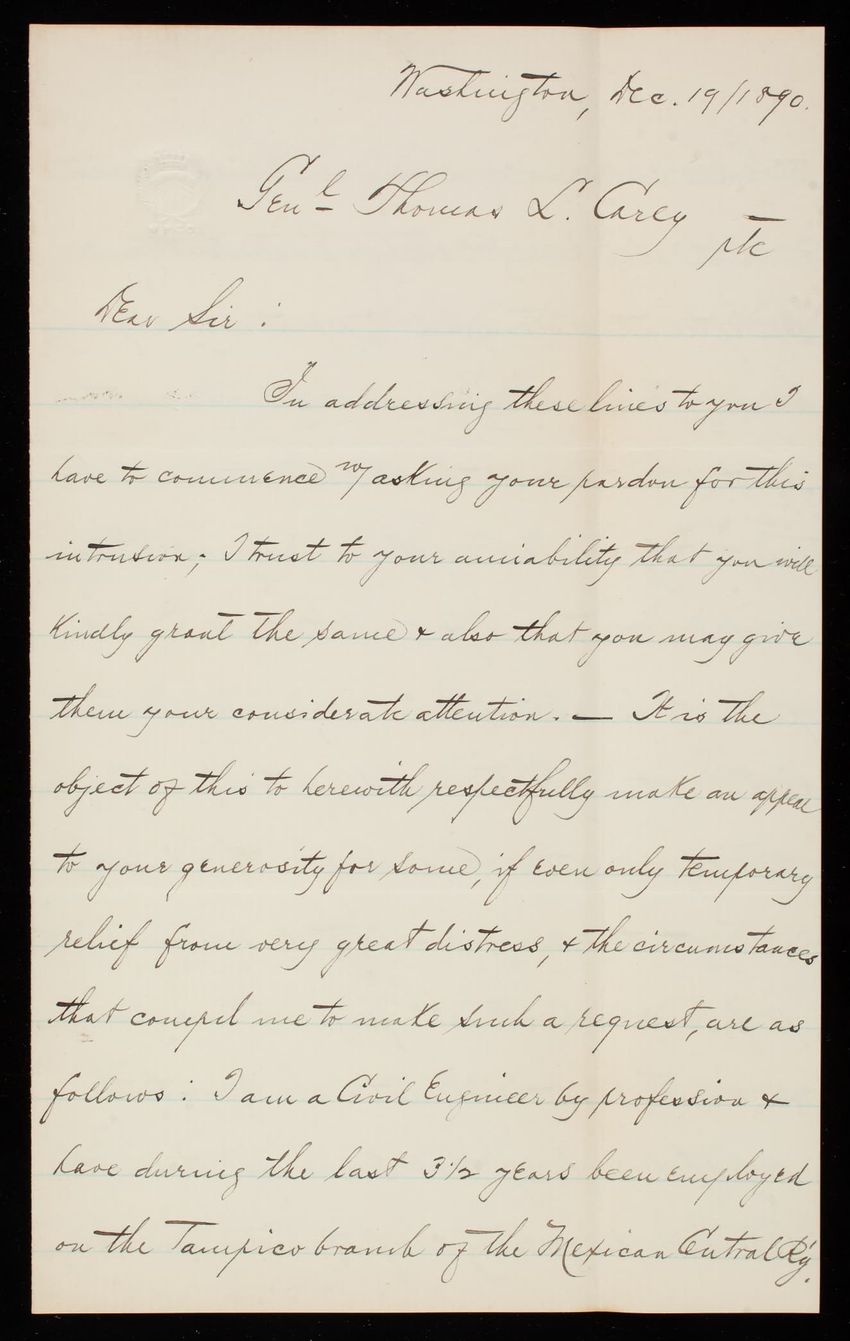 Washington, Dec. 19/1890.
Genl Thomas L. Carey
etc
Dear Sir :
In addressing these lines to you I
have to commence w/ asking your pardon for this
intrusion; I trust to your amiability that you will
kindly grant the same & also that you may give
them your considerate attention. — It is the
object of this to herewith respectfully make an appeal
to your generosity for some, if even only temporary
relief from very great distress, & the circumstances
that compel me to make such a request, are as
follows : I am a Civil Engineer by profession &
have during the last 3 1/2 years been employed
on the Tampico branch of the Mexican Central Ry.